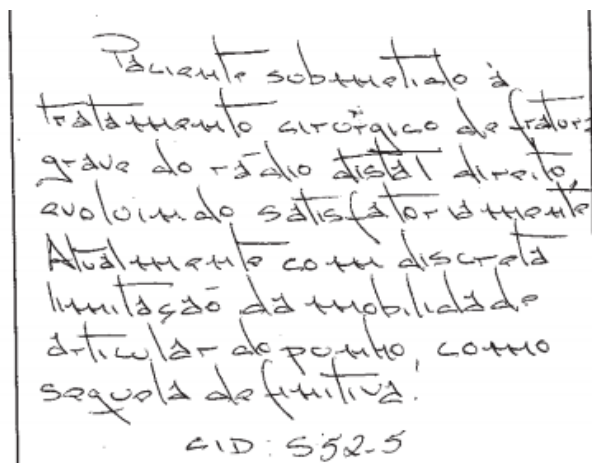 Paciente submetido à
tratamento cirúrgico de fratura
grave do rádio distal direito,
evoluindo satisfatoriamente.
Atualmente com discreta
limitação da mobilidade
articular do punho, como
sequela definitiva.
CID: S52.5